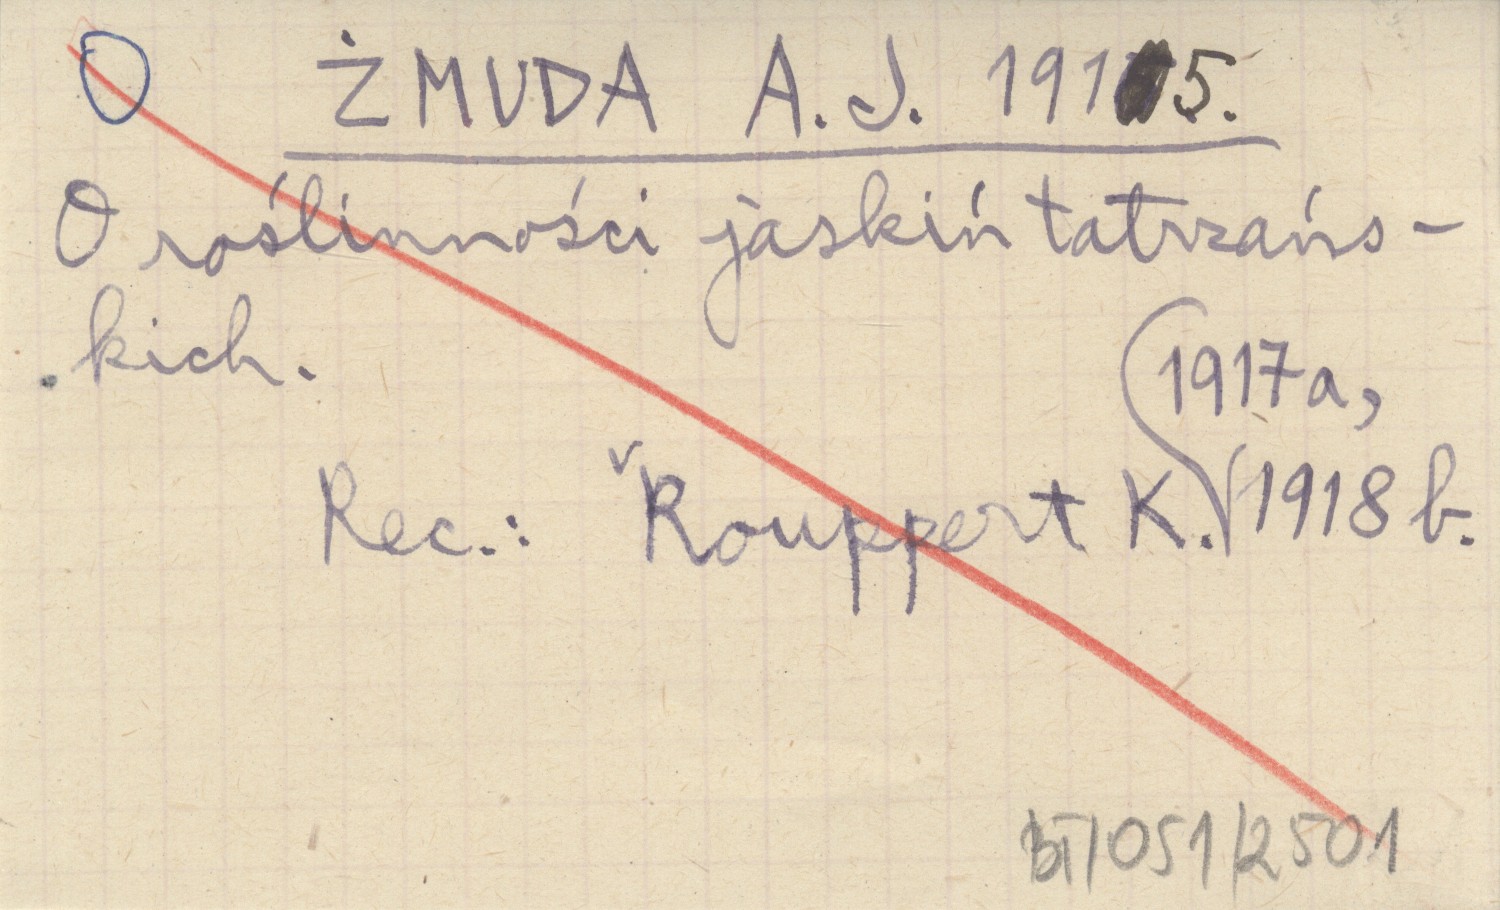 ŻMUDA A. J. 1915.
O roślinności jaskiń tatrzańs-
kich.
1917a,
Rec.: Rouppert K. 1918 b.
BT/051/2501